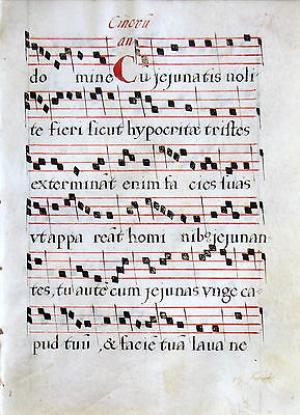 Cinerũ
an
do mine Cũ jejunatis noli
te fieri sicut hypocritæ tristes
exterminãt enim fa cies suas
vt appa reãt homi nibꝰ jejunan
tes, tu autẽ cum jejunas vnge ca
pud tuũ, & faciẽ tuã laua ne